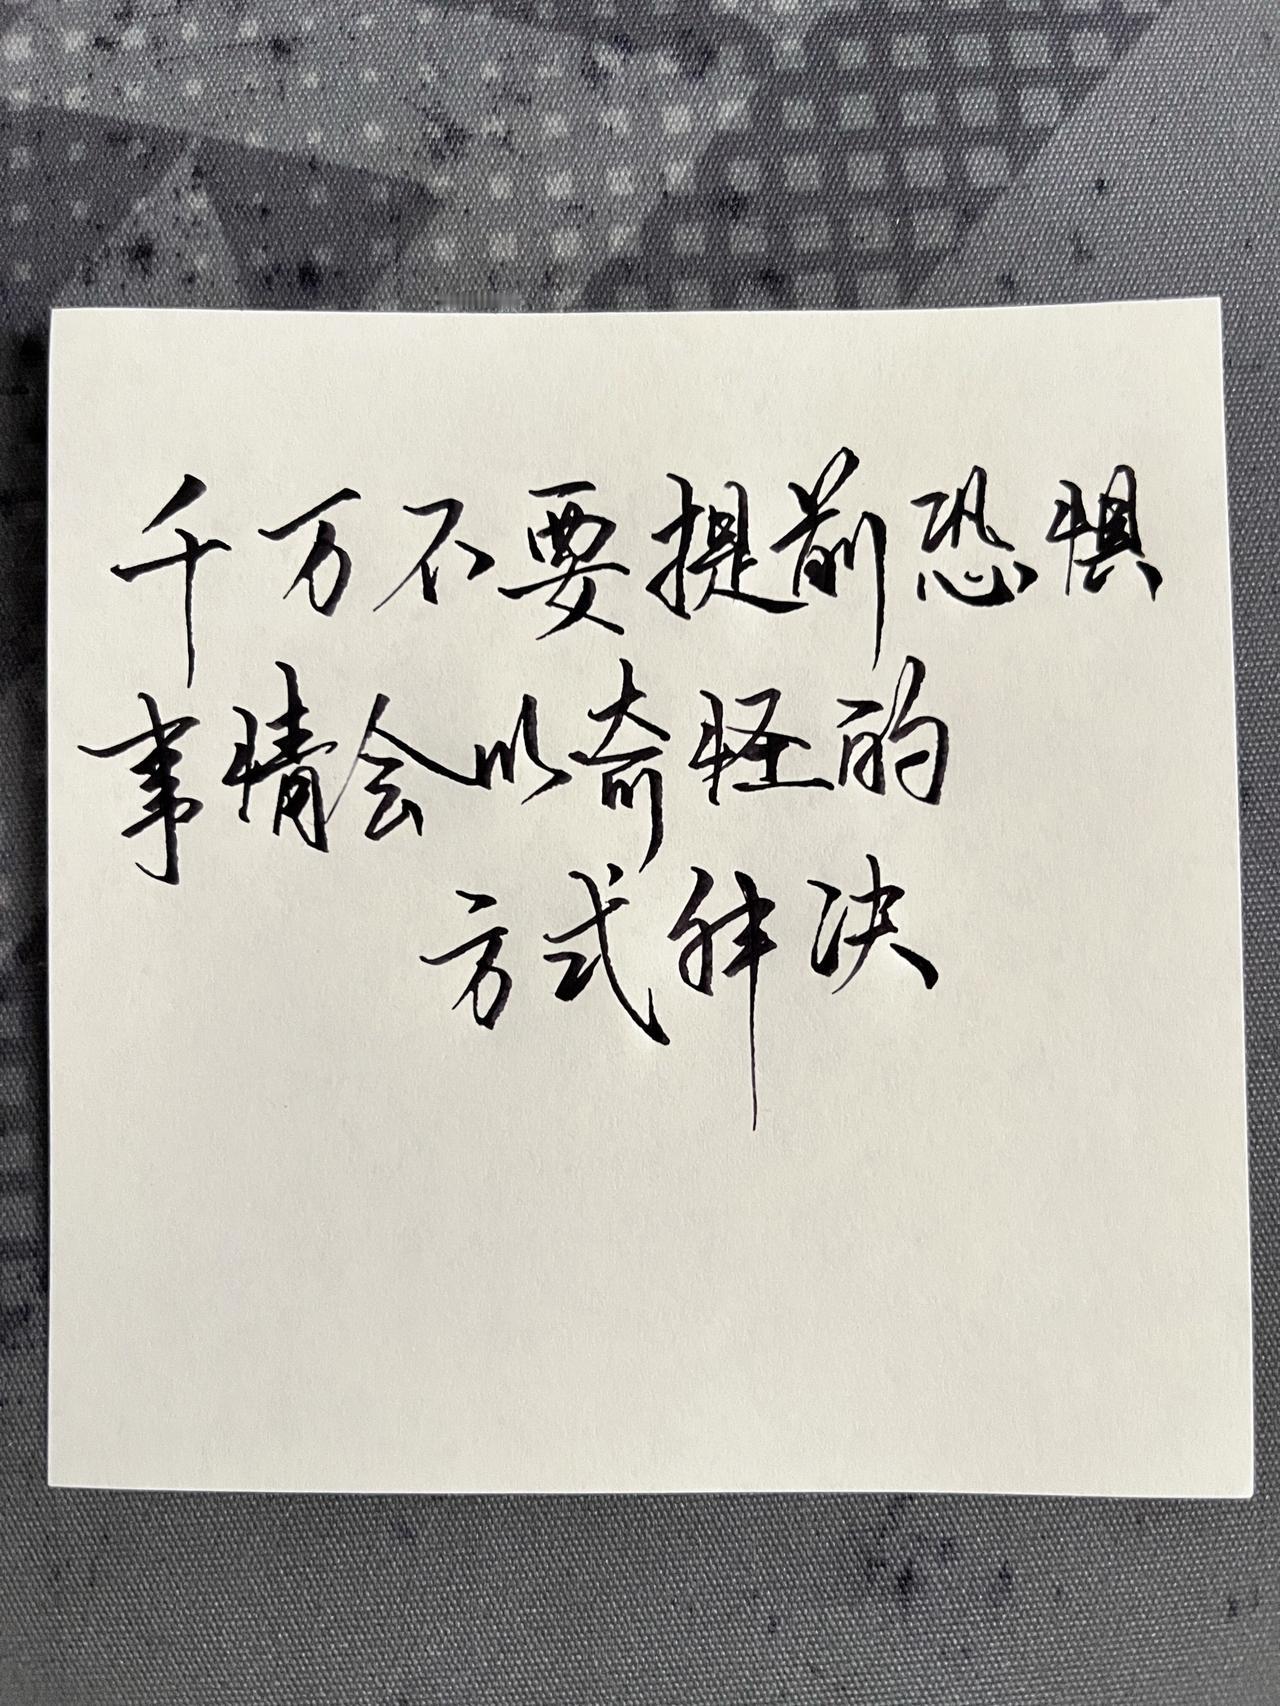 千万不要提前恐惧
事情会以奇怪的
方式解决